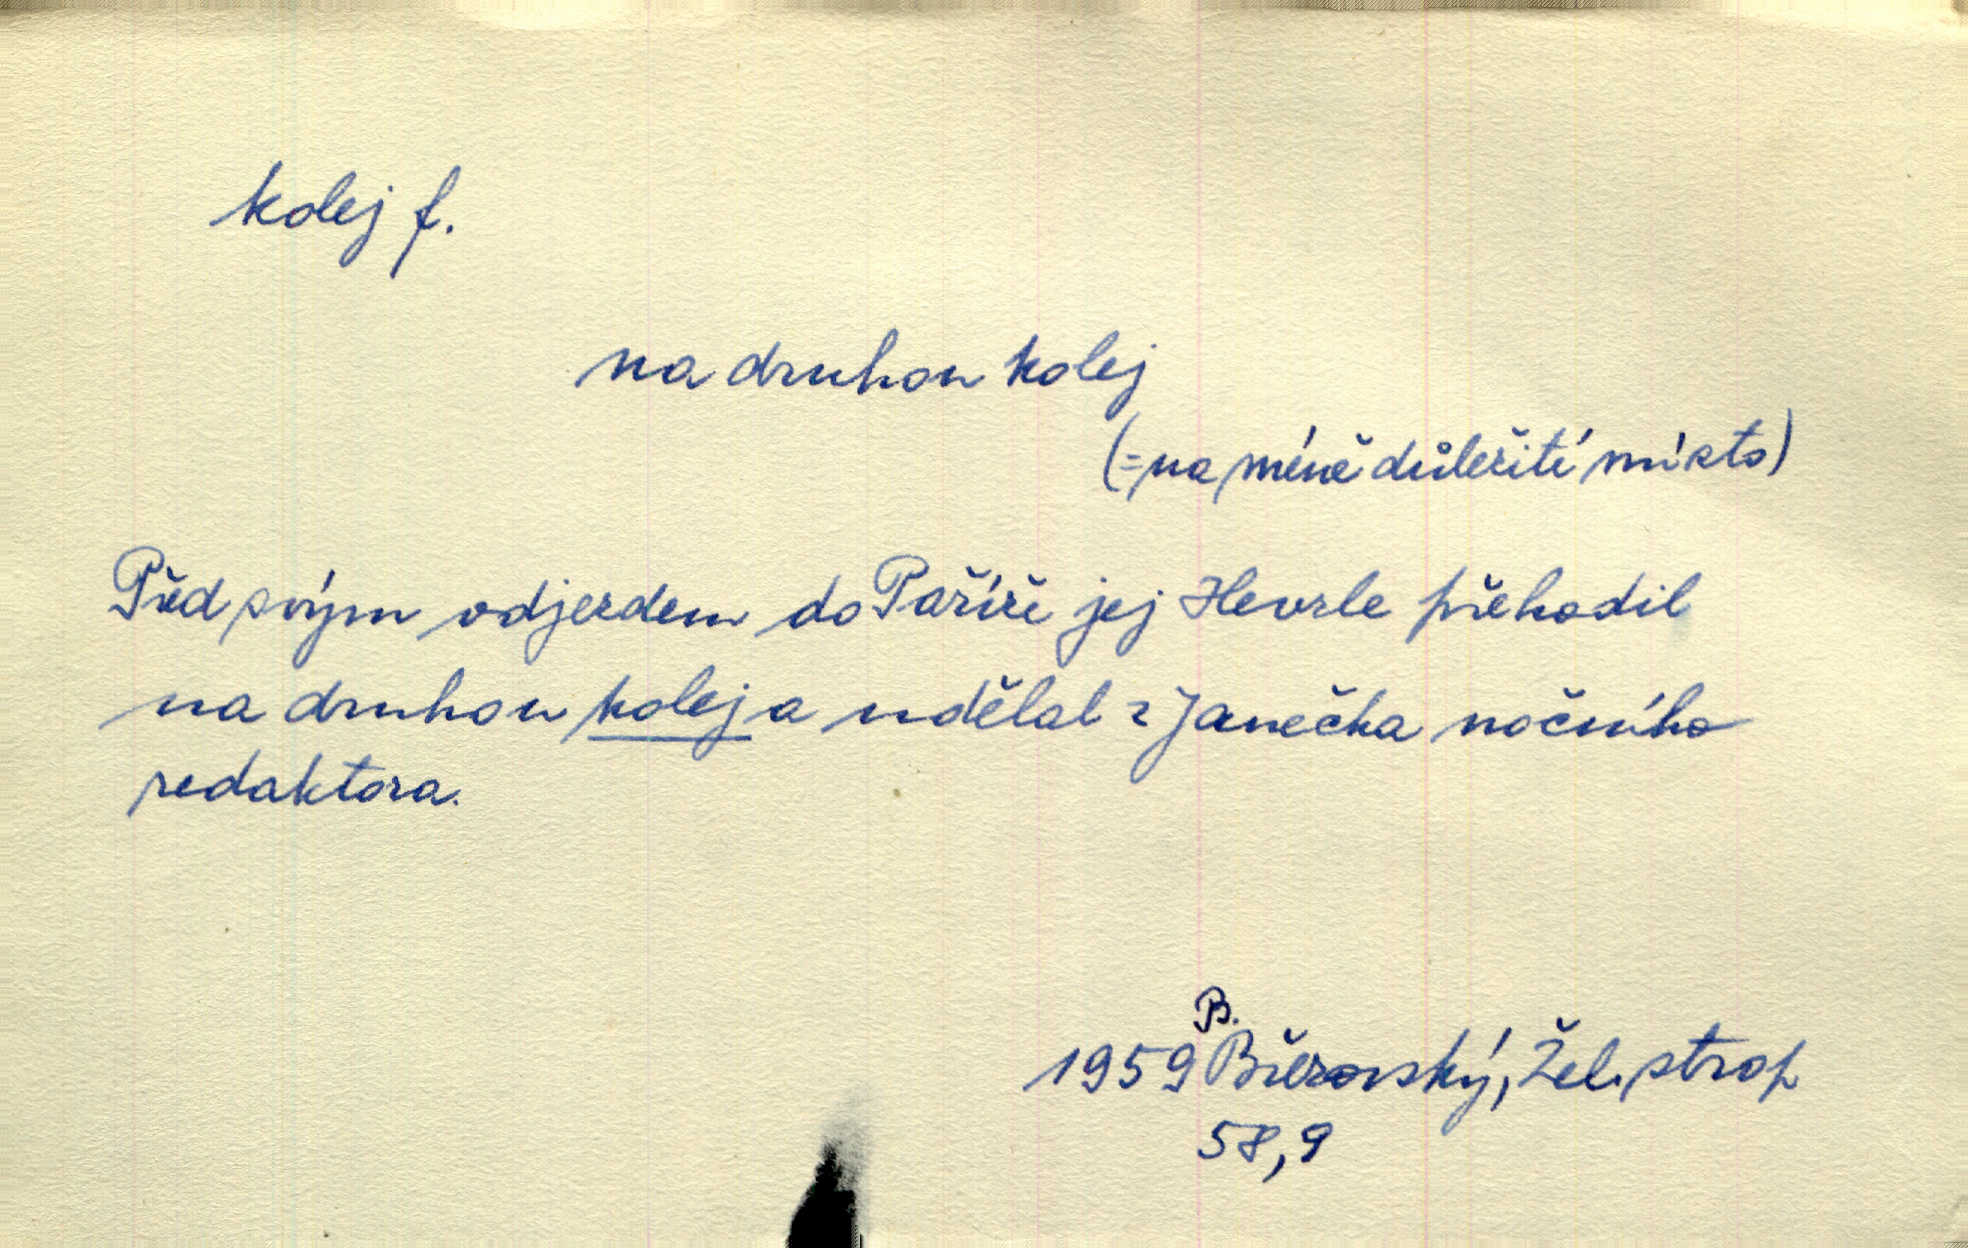 kolej f.
na druhou kolej
(= na méně důležité místo)
Před svým odjezdem do Paříže jej Hevrle přehodil
na druhou kolej a udělal z Janečka nočního
redaktora.
B.
1959 Březovský, Žel. strop
58,9